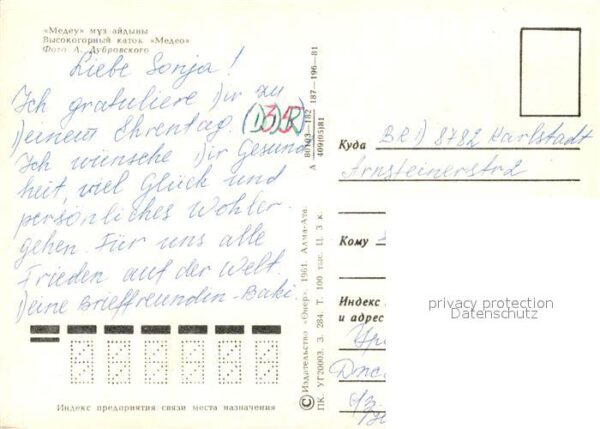 «Медеу» мұз айдыны
Высокогорный каток «Медео»
Фото А. Дубровского
Liebe Sonja!
Ich gratuliere Dir zu
Deinem Ehrentag
Ich wünsche Dir Gesund
heit, viel Glück und
persönliches Wohler-
gehen. Für uns alle
Frieden auf der Welt.
Deine Brieffreundin-Baki
Индекс предприятия связи места назначения
А 80703—182 187—196—81
409(05)81
© Издательство «Өнер», 1981. Алма-Ата.
ПК. УГ20003. З. 284. Т. 100 тыс. Ц. 3 к.
Куда BRD 8782 Karlstadt
Arnsteinerstr 2
Кому
Индекс
и адрес
privacy protection
Datenschutz